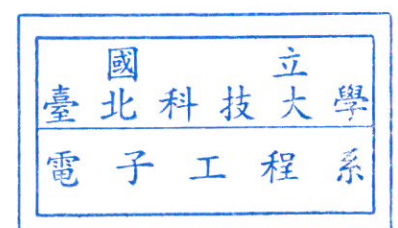 國立
臺北科技大學
電子工程系